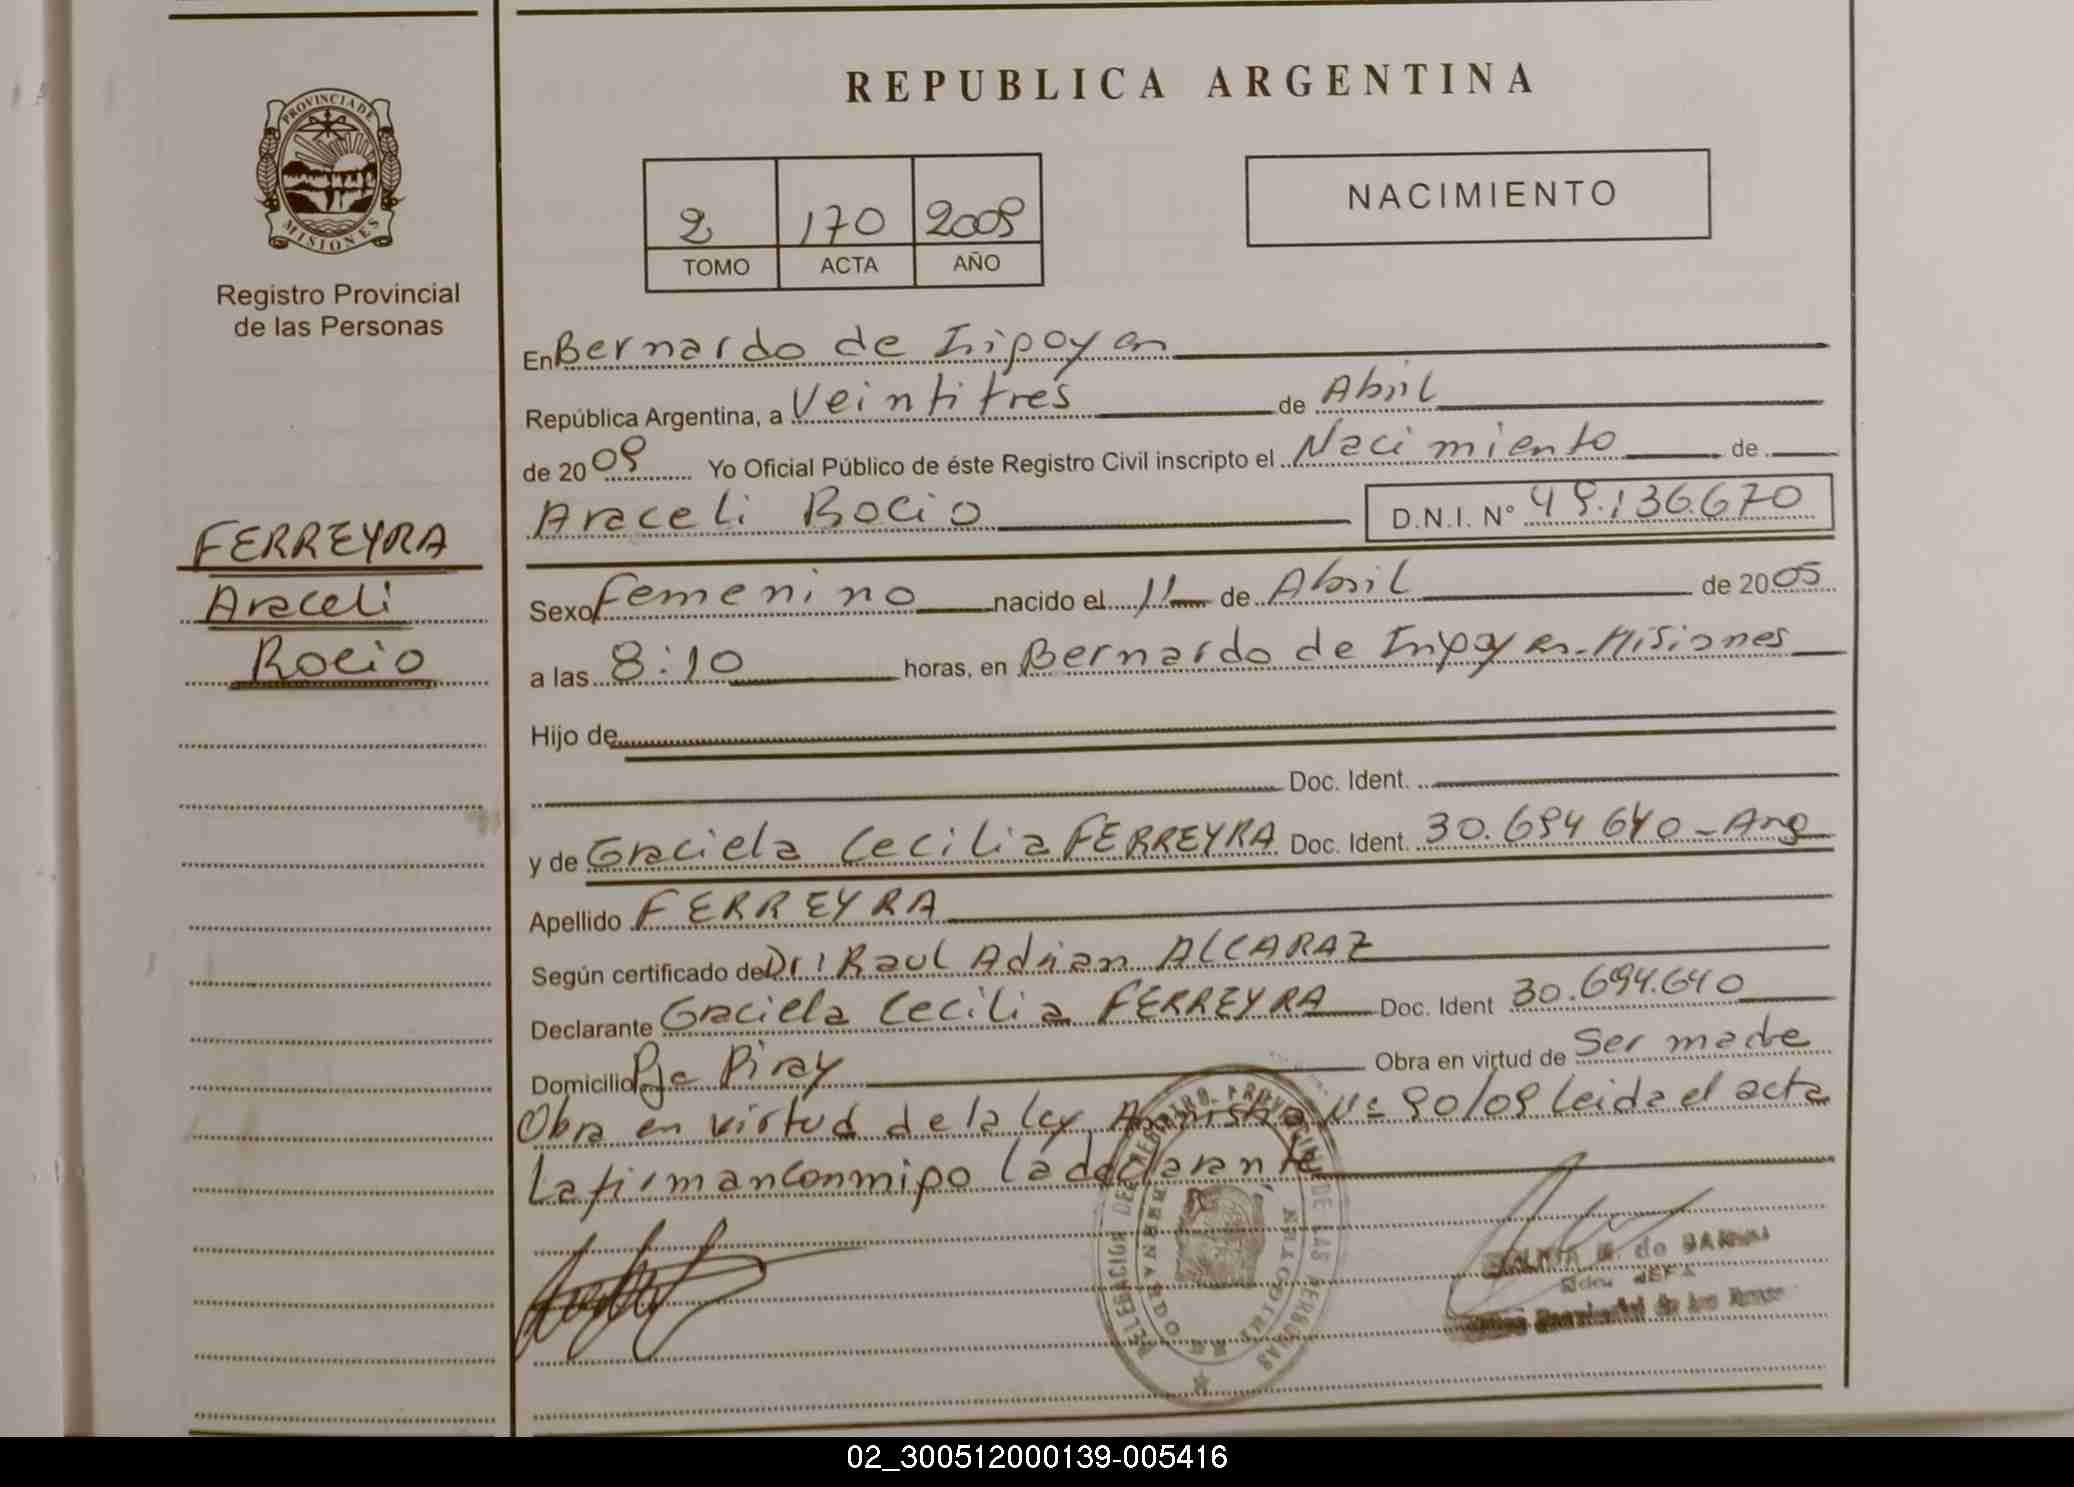 REPUBLICA ARGENTINA
PROVINCIA DE
MISIONES
Registro Provincial
de las Personas
2 170 2009
TOMO ACTA AÑO
NACIMIENTO
En Bernardo de Iripoyen
República Argentina, a Veintitrés de Abril
de 2009 Yo Oficial Público de éste Registro Civil inscripto el Nacimiento de
Araceli Rocio D.N.I. N° 49.136.670
FERREYRA
Araceli
Rocio
Sexo Femenino nacido el 11 de Abril de 2005
a las 8:10 horas, en Bernardo de Iripoyen-Misiones
Hijo de
Doc. Ident.
y de Graciela Cecilia FERREYRA Doc. Ident. 30.694 640-Arg
Apellido FERREYRA
Según certificado de Dr: Raul Adrian ALCARAZ
Declarante Graciela Cecilia FERREYRA Doc. Ident 30.694.640
Domicilio Pje Piray Obra en virtud de Ser madre
Obra en virtud de la ley Amnistia N° 90/09 Leida el acta
La firman conmipo la declarante
DELEGACION DEL REGISTRO PROVINCIAL DE LAS PERSONAS
de
02_300512000139-005416